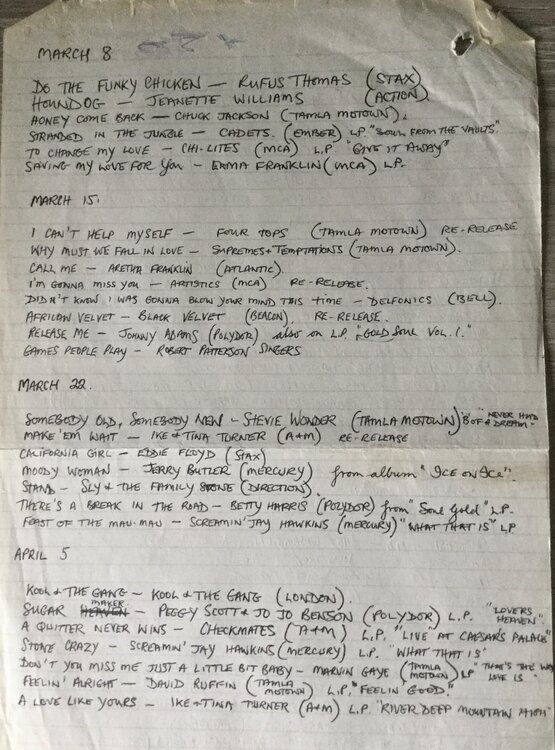 MARCH 8
DO THE FUNKY CHICKEN — RUFUS THOMAS (STAX)
HOUNDOG — JEANETTE WILLIAMS (ACTION)
HONEY COME BACK — CHUCK JACKSON (TAMLA MOTOWN).
STRANDED IN THE JUNGLE — CADETS. (EMBER) LP "SOUL FROM THE VAULTS"
TO CHANGE MY LOVE — CHI-LITES (MCA) L.P "GIVE IT AWAY"
SAVING MY LOVE FOR YOU — ERMA FRANKLIN (MCA) L.P.
MARCH 15.
I CAN'T HELP MYSELF — FOUR TOPS (TAMLA MOTOWN) RE-RELEASE
WHY MUST WE FALL IN LOVE — SUPREMES + TEMPTATIONS (TAMLA MOTOWN).
CALL ME — ARETHA FRANKLIN (ATLANTIC).
I'M GONNA MISS YOU — ARTISTICS (MCA) RE-RELEASE.
DIDN'T KNOW I WAS GONNA BLOW YOUR MIND THIS TIME — DELFONICS (BELL).
AFRICAN VELVET — BLACK VELVET (BEACON). RE-RELEASE.
RELEASE ME — JOHNNY ADAMS (POLYDOR) also on L.P. "GOLD SOUL VOL. 1."
GAMES PEOPLE PLAY — ROBERT PATTERSON SINGERS
MARCH 22.
SOMEBODY OLD, SOMEBODY NEW — STEVIE WONDER (TAMLA MOTOWN) 'B' OF "NEVER HAD A DREAM"
MAKE 'EM WAIT — IKE + TINA TURNER (A+M) RE-RELEASE
CALIFORNIA GIRL — EDDIE FLOYD (STAX)
MOODY WOMAN — JERRY BUTLER (MERCURY) from album "ICE ON ICE".
STAND — SLY + THE FAMILY STONE (DIRECTION).
THERE'S A BREAK IN THE ROAD — BETTY HARRIS (POLYDOR) from "Soul Gold" L.P.
FEAST OF THE MAU-MAU — SCREAMIN' JAY HAWKINS (MERCURY) "WHAT THAT IS" LP
APRIL 5
KOOL + THE GANG — KOOL + THE GANG (LONDON).
SUGAR HEAVEN MAKER — PEGGY SCOTT & JO JO BENSON (POLYDOR) L.P. "LOVERS HEAVEN"
A QUITTER NEVER WINS — CHECKMATES (A+M) L.P. "LIVE AT CAESAR'S PALACE"
STONE CRAZY — SCREAMIN' JAY HAWKINS (MERCURY) L.P. "WHAT THAT IS'
DON'T YOU MISS ME JUST A LITTLE BIT BABY — MARVIN GAYE (TAMLA MOTOWN) LP "THAT'S THE WAY LOVE IS"
FEELIN' ALRIGHT — DAVID RUFFIN (TAMLA MOTOWN) L.P. "FEELIN GOOD."
A LOVE LIKE YOURS — IKE + TINA TURNER (A+M) L.P. "RIVER DEEP MOUNTAIN HIGH"